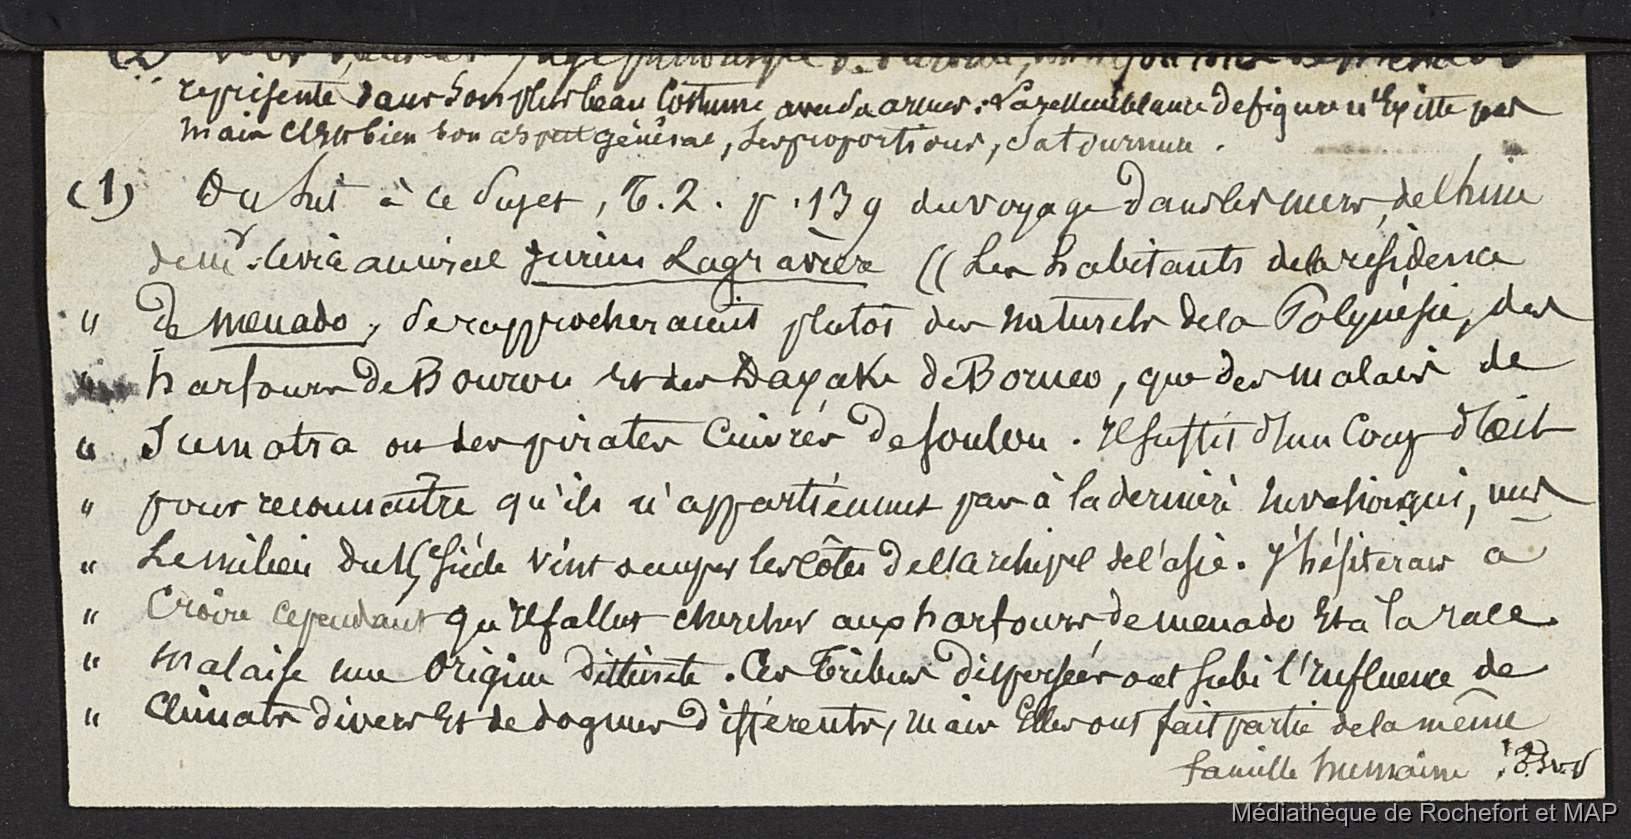 (2)
représenté dans son plus beau Costume avec sa armes. La ressemblance de figure n'Existe pas
mais C'Est bien son aspect général, ses proportions, sa tournure.
(1) On lit à ce Sujet, T. 2. p. 139 du voyage dans les mers de Chine
de mr. le vice amiral Jurien Lagravière (( Les habitants de la résidence
" De menado, se rapprocheraient plutôt des naturels de la Polynésie, des
" harfours De Bourou Et des Dayaks de Borneo, que des malais de
" Sumatra ou des pirates Cuivrés De Soulou. Il suffit d'un Coup d'Œil
" pour reconnaître qu'ils n'appartiennent pas à la dernière Invasion qui, vers
" Le milieu du siècle vint occuper les Côtes De l'Archipel de l'asie. J'hésiterais à
" Croire cependant qu'Il fallut chercher aux harfours de menado Et à la race
" malaise une Origine distincte. Ces Tribus dispersées ont subi l'Influence de
" Climats divers Et de dogmes Différents, mais Elles ont fait partie de la même
famille humaine
Médiathèque de Rochefort et MAP